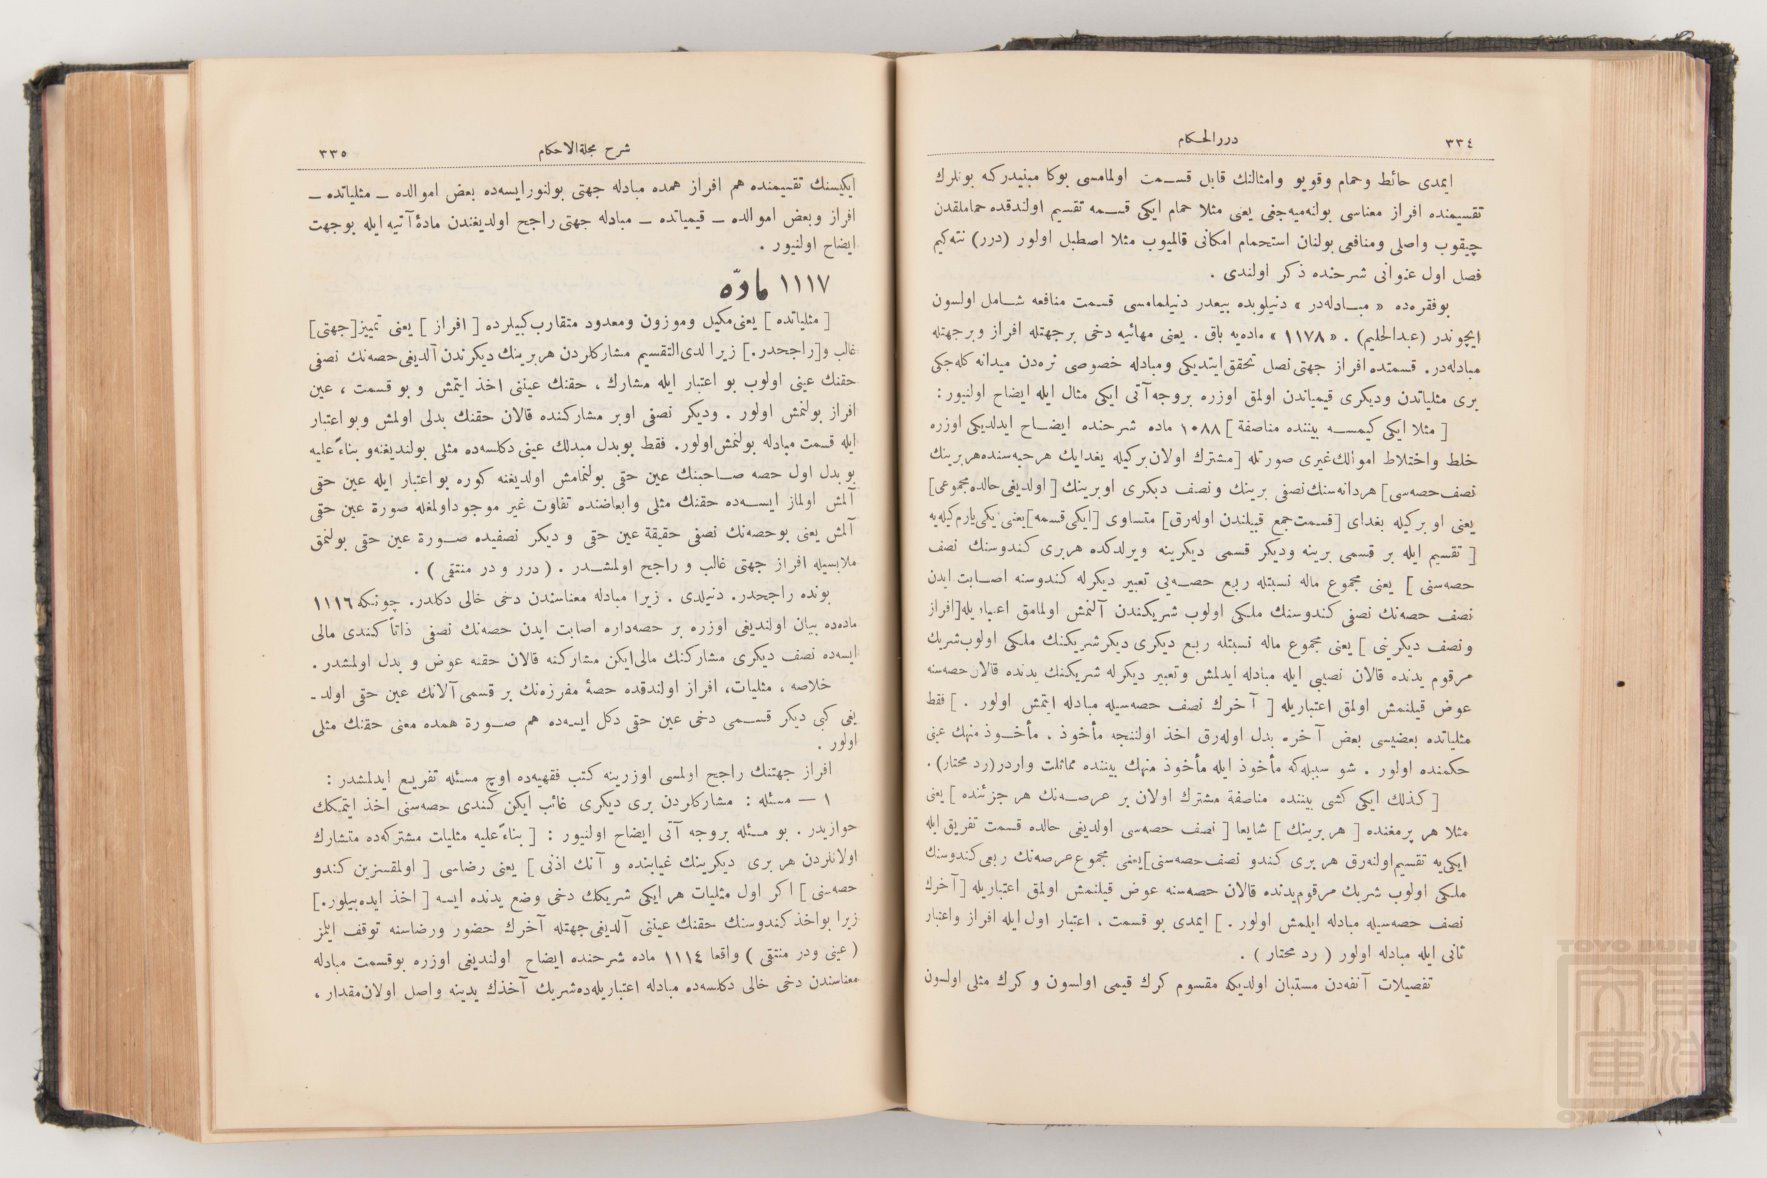 ٣٣٤
دررالحكام
ايمدى حائط وحمام وقويو وامثالنك قابل قسمت اولمامسى بوكا مبنيدركه بونلرك
تقسيمنده افراز معناسى بولنه‌ميه‌جغى يعنى مثلا حمام ايكى قسمه تقسيم اولندقده حماملقدن
چيقوب واصلى ومنافعى بولنان استحمام امكانى قالميوب مثلا اصطبل اولور (درر) نته‌كيم
فصل اول عنوانى شرحنده ذكر اولندى .
بوفقره‌ده « مبادله‌در » دنيلوبده بيعدر دنيلمامسى قسمت منافعه شامل اولسون
ايچوندر (عبدالحليم) . « ١١٧٨ » ماده‌يه باق . يعنى مهائيه دخى برجهتله افراز وبرجهتله
مبادله‌در. قسمتده افراز جهتى نصل تحقق ايتديكى ومبادله خصوصى نره‌دن ميدانه كله‌جكى
برى مثلياتدن وديكرى قيمياتدن اولمق اوزره بروجه آتى ايكى مثال ايله ايضاح اولنيور :
[ مثلا ايكى كيمسه بيننده مناصفة ] ١٠٨٨ ماده شرحنده ايضاح ايدلديكى اوزره
خلط واختلاط اموالك غيرى صورتله [مشترك اولان بركيله بغدايك هرحبه‌سنده هربرينك
نصف حصه‌سى] هردانه‌سنك نصفى برينك ونصف ديكرى اوبرينك [اولديغى حالده مجموعى]
يعنى او بركيله بغداى [قسمت جمع قبيلندن اوله‌رق] متساوى [ايكى قسمه] يعنى ايكى يارم كيله‌يه
[ تقسيم ايله بر قسمى برينه وديكر قسمى ديكرينه ويرلدكده هربرى كندوسنك نصف
حصه‌سنى ] يعنى مجموع ماله نسبتله ربع حصه‌يى تعبير ديكرله كندوسنه اصابت ايدن
نصف حصه‌نك نصفى كندوسنك ملكى اولوب شريكندن آلنمش اولمامق اعتباريله[افراز
ونصف ديكرينى ] يعنى مجموع ماله نسبتله ربع ديكرى ديكر شريكنك ملكى اولوب شريك
مرقوم يدنده قالان نصيبى ايله مبادله ايدلمش وتعبير ديكرله شريكنك يدنده قالان حصه‌سنه
عوض قيلنمش اولمق اعتباريله [ آخرك نصف حصه‌سيله مبادله ايتمش اولور . ] فقط
مثلياتده بعضيسى بعض آخره بدل اوله‌رق اخذ اولننجه مأخوذ ، مأخوذ منهك عينى
حكمنده اولور . شو سببله‌كه مأخوذ ايله مأخوذ منهك بيننده مماثلت واردر(رد محتار).
[ كذلك ايكى كشى بيننده مناصفة مشترك اولان بر عرصه‌نك هر جزئنده ] يعنى
مثلا هر پرمغنده [ هر برينك ] شايعا [ نصف حصه‌سى اولديغى حالده قسمت تفريق ايله
ايكى‌يه تقسيم اولنه‌رق هر برى كندو نصف حصه‌سنى]يعنى مجموع عرصه‌نك ربعى كندوسنك
ملكى اولوب شريك مرقوم يدنده قالان حصه‌سنه عوض قيلنمش اولمق اعتباريله [آخرك
نصف حصه‌سيله مبادله ايلمش اولور . ] ايمدى بو قسمت ، اعتبار اول ايله افراز واعتبار
ثانى ايله مبادله اولور ( رد محتار ) .
تفصيلات آنفه‌دن مستبان اولديكه مقسوم كرك قيمى اولسون و كرك مثلى اولسون
شرح مجلةالاحكام
٣٣٥
ايكيسنك تقسيمنده هم افراز همده مبادله جهتى بولنورايسه‌ده بعض اموالده ــ مثلياتده ــ
افراز وبعض اموالده ــ قيمياتده ــ مبادله جهتى راجح اولديغندن مادۀ آتيه ايله بوجهت
ايضاح اولنيور .
١١١٧ مادّه
[ مثلياتده ] يعنى مكيل وموزون ومعدود متقارب كبيلرده [ افراز ] يعنى تمييز[جهتى]
غالب و[راجحدر.] زيرا لدى‌التقسيم مشاركلردن هربرينك ديكرندن آلديغى حصه‌نك نصفى
حقنك عينى اولوب بو اعتبار ايله مشارك ، حقنك عيننى اخذ ايتمش و بو قسمت ، عين
افراز بولنمش اولور . وديكر نصفى اوبر مشاركنده قالان حقنك بدلى اولمش وبو اعتبار
ايله قسمت مبادله بولنمش اولور. فقط بوبدل مبدلك عينى دكلسه‌ده مثلى بولنديغنه‌و بناءً عليه
بو بدل اول حصه صاحبنك عين حقى بولنمامش اولديغنه كوره بو اعتبار ايله عين حقى
آلمش اولماز ايسه‌ده حقنك مثلى وابعاضنده تفاوت غير موجود اولمغله صورة عين حقى
آلمش يعنى بوحصه‌نك نصفى حقيقة عين حقى و ديكر نصفيده صورة عين حقى بولنمق
ملابسيله افراز جهتى غالب و راجح اولمشدر . ( درر و در منتقى ) .
بونده راجحدر. دنيلدى . زيرا مبادله معناسندن دخى خالى دكلدر. چونكه ١١١٦
ماده‌ده بيان اولنديغى اوزره بر حصه‌داره اصابت ايدن حصه‌نك نصفى ذاتاً كندى مالى
ايسه‌ده نصف ديكرى مشاركنك مالى ايكن مشاركنه قالان حقنه عوض و بدل اولمشدر .
خلاصه ، مثليات، افراز اولندقده حصۀ مفرزه‌نك بر قسمى آلانك عين حقى اولد-
يغى كبى ديكر قسمى دخى عين حقى دكل ايسه‌ده هم صورة همده معنى حقنك مثلى
اولور .
افراز جهتنك راجح اولمسى اوزرينه كتب فقهيه‌ده اوچ مسئله تفريع ايدلمشدر :
١ — مسئله : مشاركلردن برى ديكرى غائب ايكن كندى حصه‌سنى اخذ ايتمكلك
جوازيدر . بو مسئله بروجه آتى ايضاح اولنيور : [ بناءً عليه مثليات مشتركه‌ده متشارك
اولانلردن هر برى ديكرينك غيابنده و آنك اذنى ] يعنى رضاسى [ اولمقسزين كندو
حصه‌سنى ] اكر اول مثليات هر ايكى شريكك دخى وضع يدنده ايسه [ اخذ ايده‌بيلور.]
زيرا بواخذ كندوسنك حقنك عيننى آلديغى جهتله آخرك حضور ورضاسنه توقف ايلمز
( عينى ودر منتقى ) واقعا ١١١٤ ماده شرحنده ايضاح اولنديغى اوزره بوقسمت مبادله
معناسندن دخى خالى دكلسه‌ده مبادله اعتباريله‌ده شريك آخذك يدينه واصل اولان مقدار ،
TOYO BUNKO